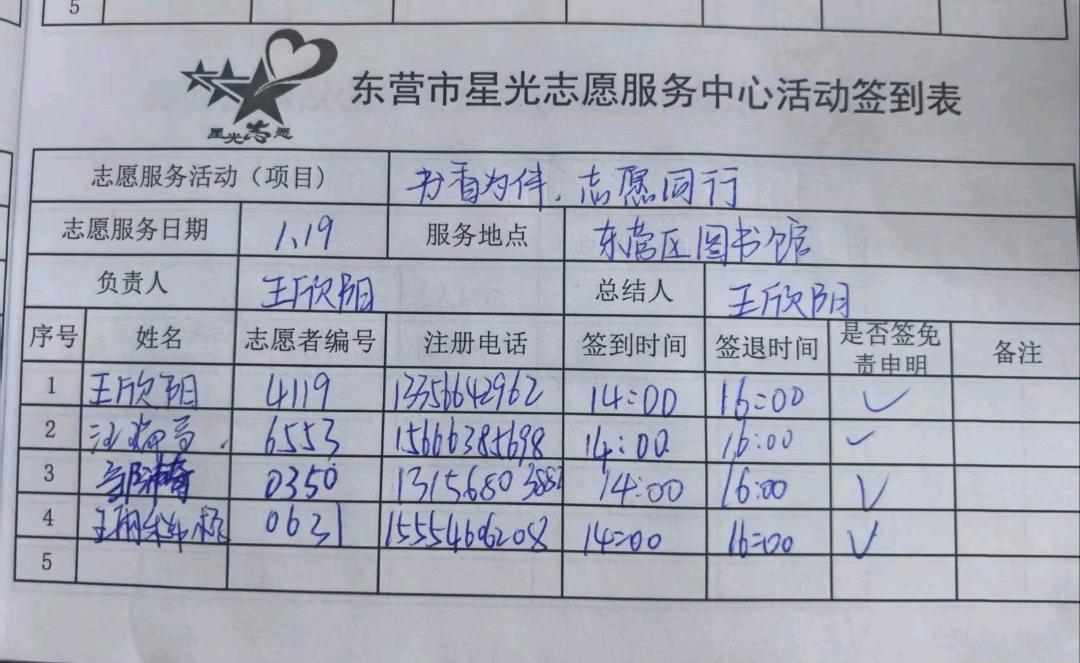 5
星光志愿
东营市星光志愿服务中心活动签到表
志愿服务活动（项目） 书香为伴，志愿同行
志愿服务日期 1、19 服务地点 东营区图书馆
负责人 王欣阳 总结人 王欣阳
序号 姓名 志愿者编号 注册电话 签到时间 签退时间 是否签免责申明 备注
1 王欣阳 4119 13356642962 14:00 16:00 ✓
2 6553 15666385698 14:00 16:00 ✓
3 0350 13156803882 14:00 16:00 ✓
4 0631 15554606208 14:00 16:00 ✓
5